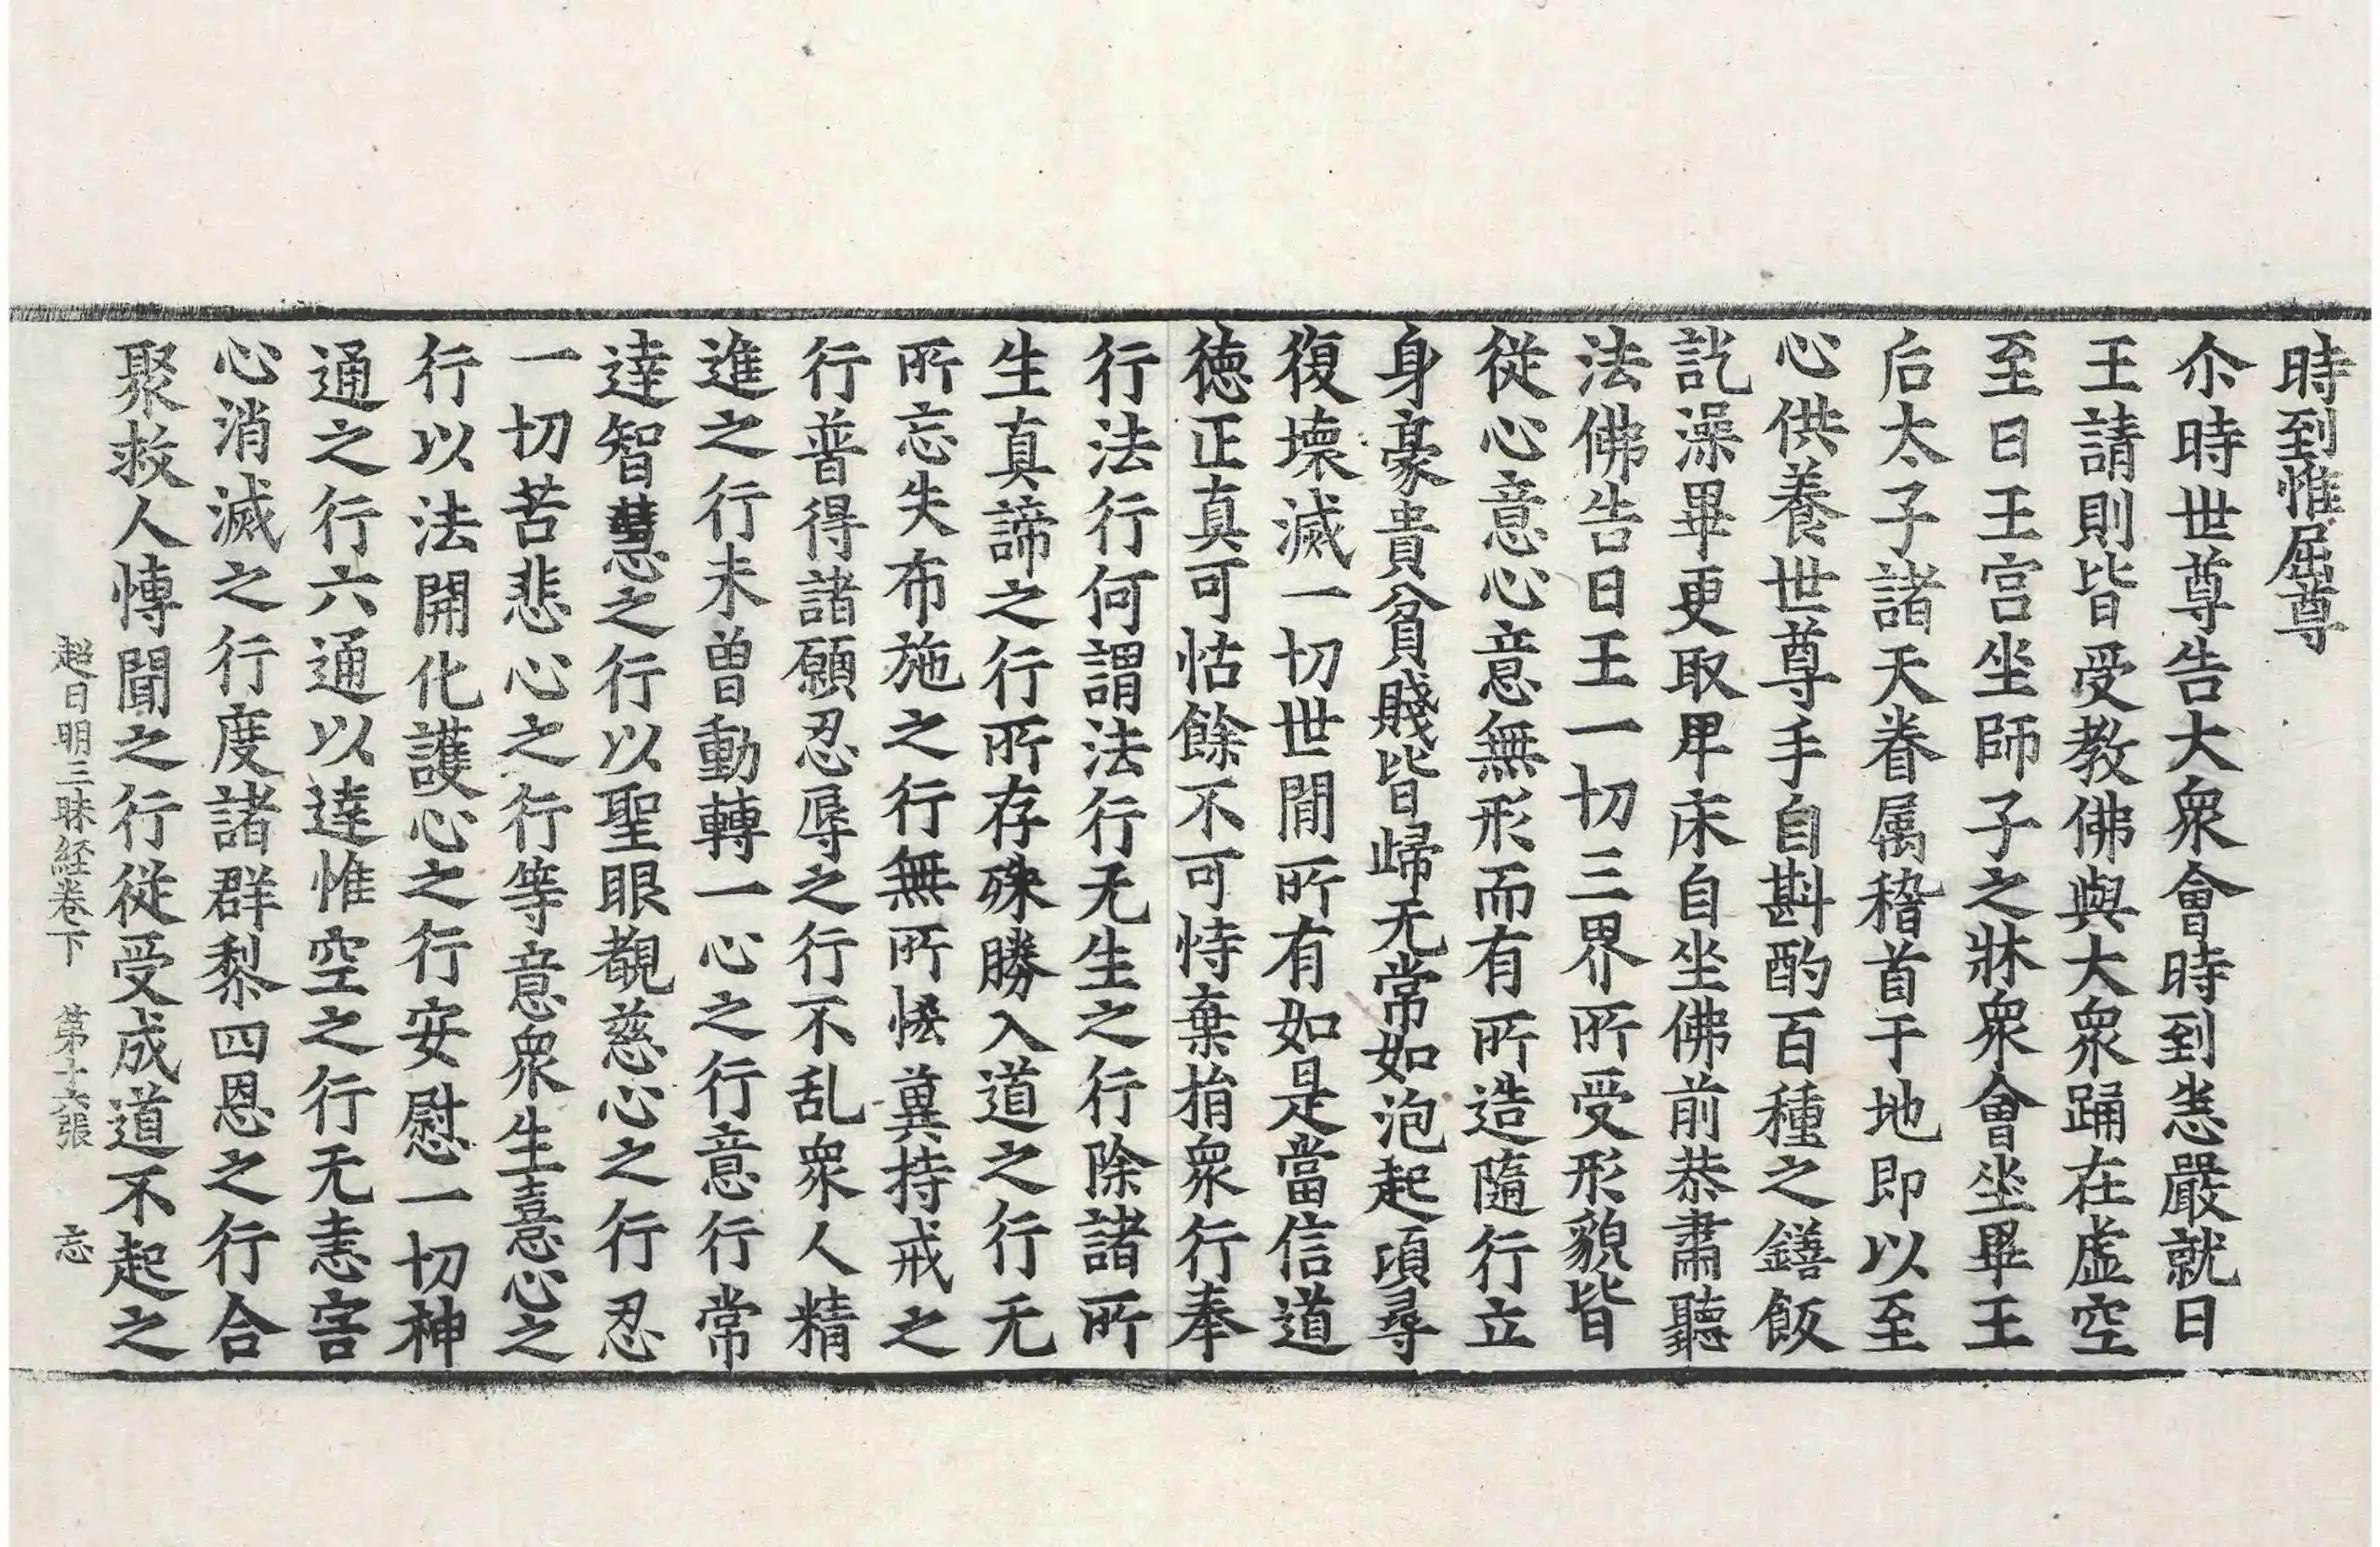 時到惟屈尊
尒時世尊告大衆會時到悉嚴就日
王請則皆受教佛與大衆踊在虛空
至日王宮坐師子之牀衆會坐畢王
后太子諸天眷属稽首于地即以至
心供養世尊手自斟酌百種之饍飯
訖澡畢更取卑床自坐佛前恭肅聽
法佛告日王一切三界所受形貌皆
從心意心意無形而有所造隨行立
身豪貴貧賤皆歸无常如泡起頃尋
復壞滅一切世閒所有如是當信道
德正真可怙餘不可恃棄捐衆行奉
行法行何謂法行无生之行除諸所
生真諦之行所存殊勝入道之行无
所忘失布施之行無所悋兾持戒之
行普得諸願忍辱之行不乱衆人精
進之行未曽動轉一心之行意行常
達智慧之行以聖眼覩慈心之行忍
一切苦悲心之行等意衆生憙心之
行以法開化護心之行安慰一切神
通之行六通以達惟空之行无恚害
心消滅之行度諸群黎四恩之行合
聚救人愽聞之行從受成道不起之
超日明三昧経卷下 第十六張 忘